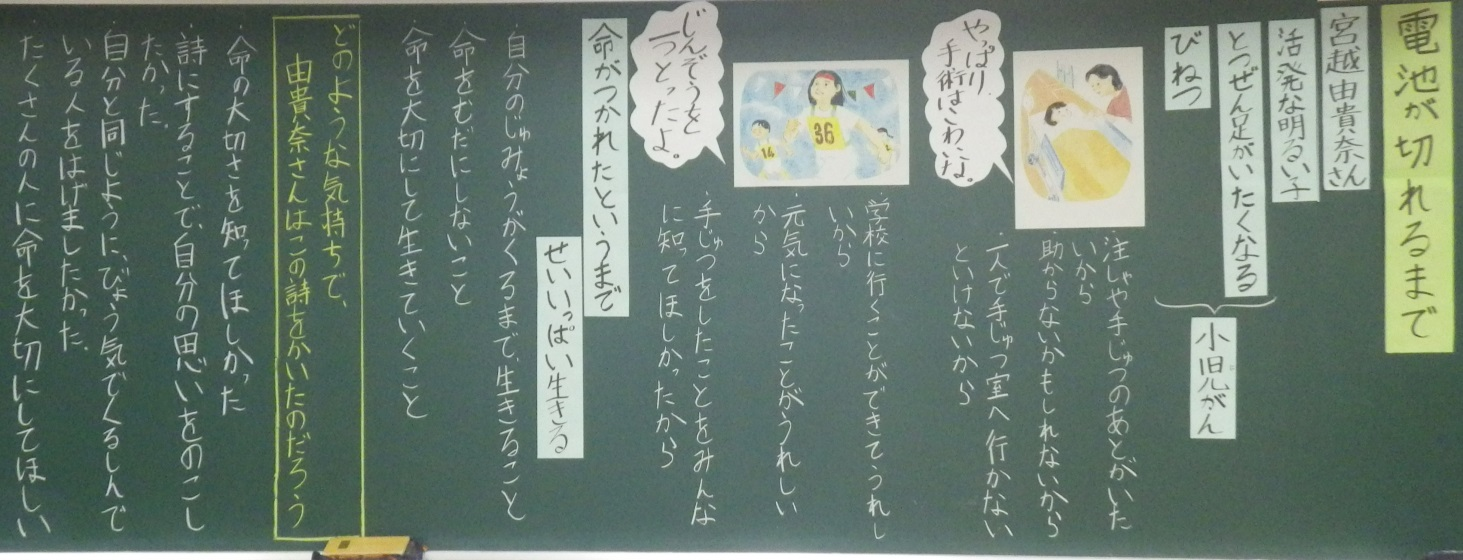 電池が切れるまで
宮越由貴奈さん
活発な明るい子
とつぜん足がいたくなる
びねつ
小児がん
やっぱり、
手術はこわいな。
・注しゃや手じゅつのあとがいた
いから
・助からないかもしれないから
・一人で手じゅつ室へ行かない
といけないから
36
14
・学校に行くことができてうれし
いから
・元気になったことがうれしい
から
じんぞうを
一つとったよ。
・手じゅつをしたことをみんな
に知ってほしかったから
命がつかれたというまで
せいいっぱい生きる
・自分のじゅみょうがくるまで、生きること
・命をむだにしないこと
・命を大切にして生きていくこと
どのような気持ちで、
由貴奈さんはこの詩をかいたのだろう
・命の大切さを知ってほしかった
・詩にすることで、自分の思いをのこし
たかった。
・自分と同じように、びょう気でくるしんで
いる人をはげましたかった。
・たくさんの人に命を大切にしてほしい